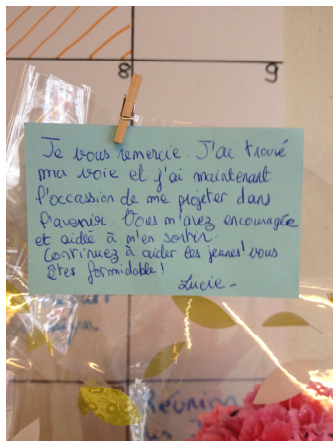 8
9
Je vous remercie. J'ai trouvé
ma voie et j'ai maintenant
l'occassion de me projeter dans
l'avenir. Vous m'avez encouragée
et aidée à m'en sortir.
Continuez à aider les jeunes! vous
êtes formidable!
Lucie-
Réunion